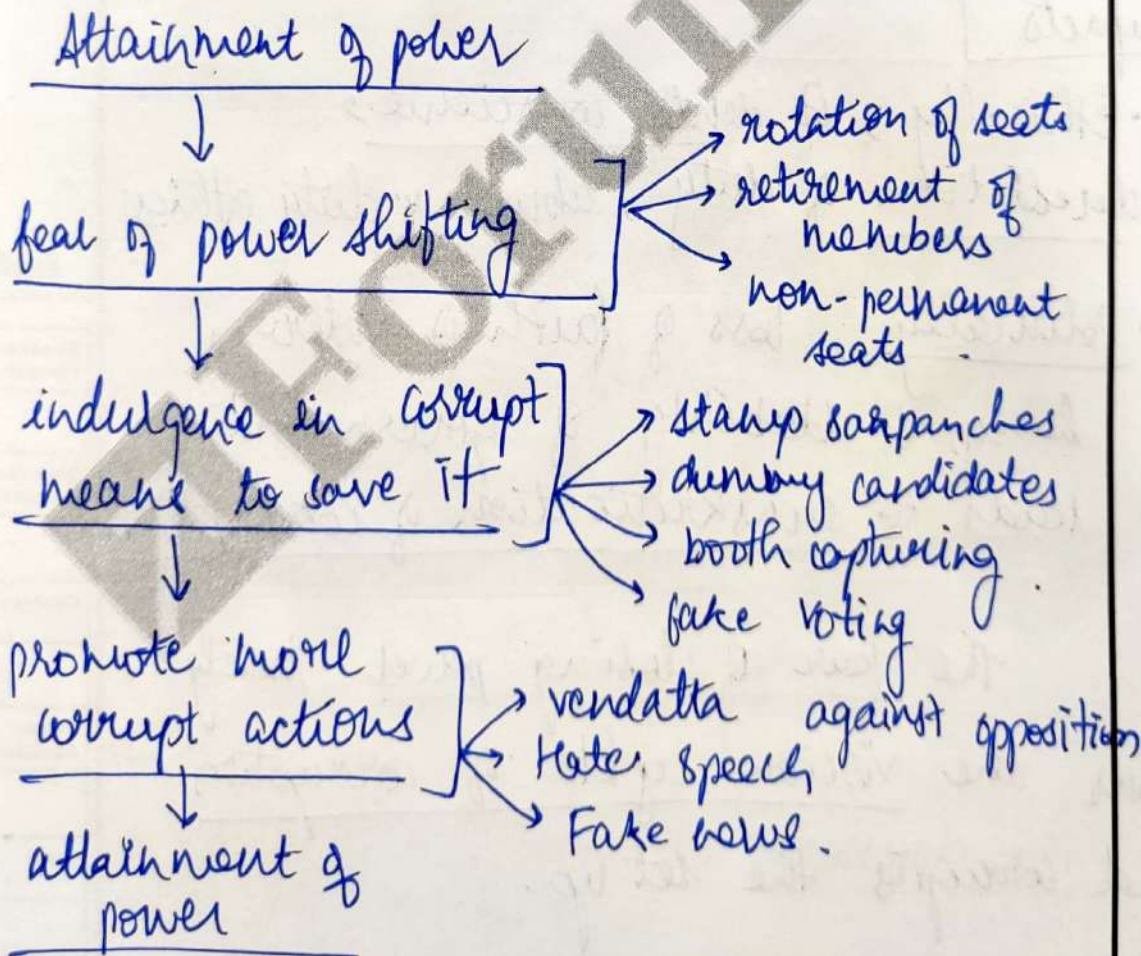 Attainment of power
fear of power shifting
rotation of seats
retirement of
members
non-permanent
seats.
indulgence in corrupt
means to save it
stamp sarpanches
dummy candidates
booth capturing
fake voting
promote more
corrupt actions
vendatta against opposition
Hate speech
Fake news.
attainment of
power
Forum